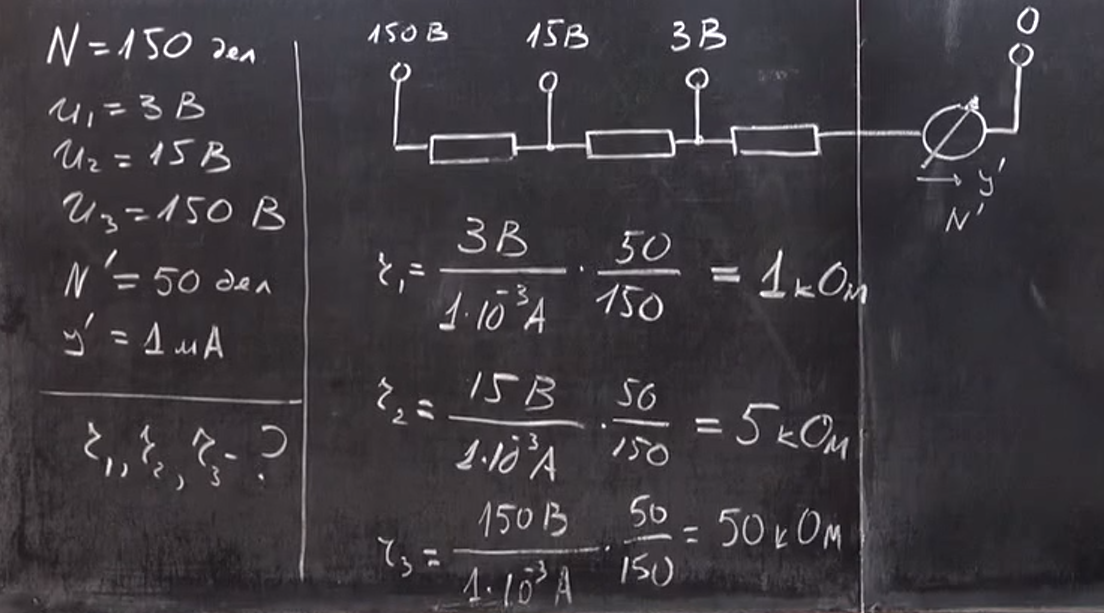 N = 150 дел
u₁ = 3 В
u₂ = 15 В
u₃ = 150 В
N' = 50 дел
y' = 1 мА
r₁, r₂, r₃ - ?
150 В 15 В 3 В 0
y'
N'
r₁ = 3 В / 1·10⁻³ А · 50 / 150 = 1 кОм
r₂ = 15 В / 1·10⁻³ А · 50 / 150 = 5 кОм
r₃ = 150 В / 1·10⁻³ А · 50 / 150 = 50 кОм